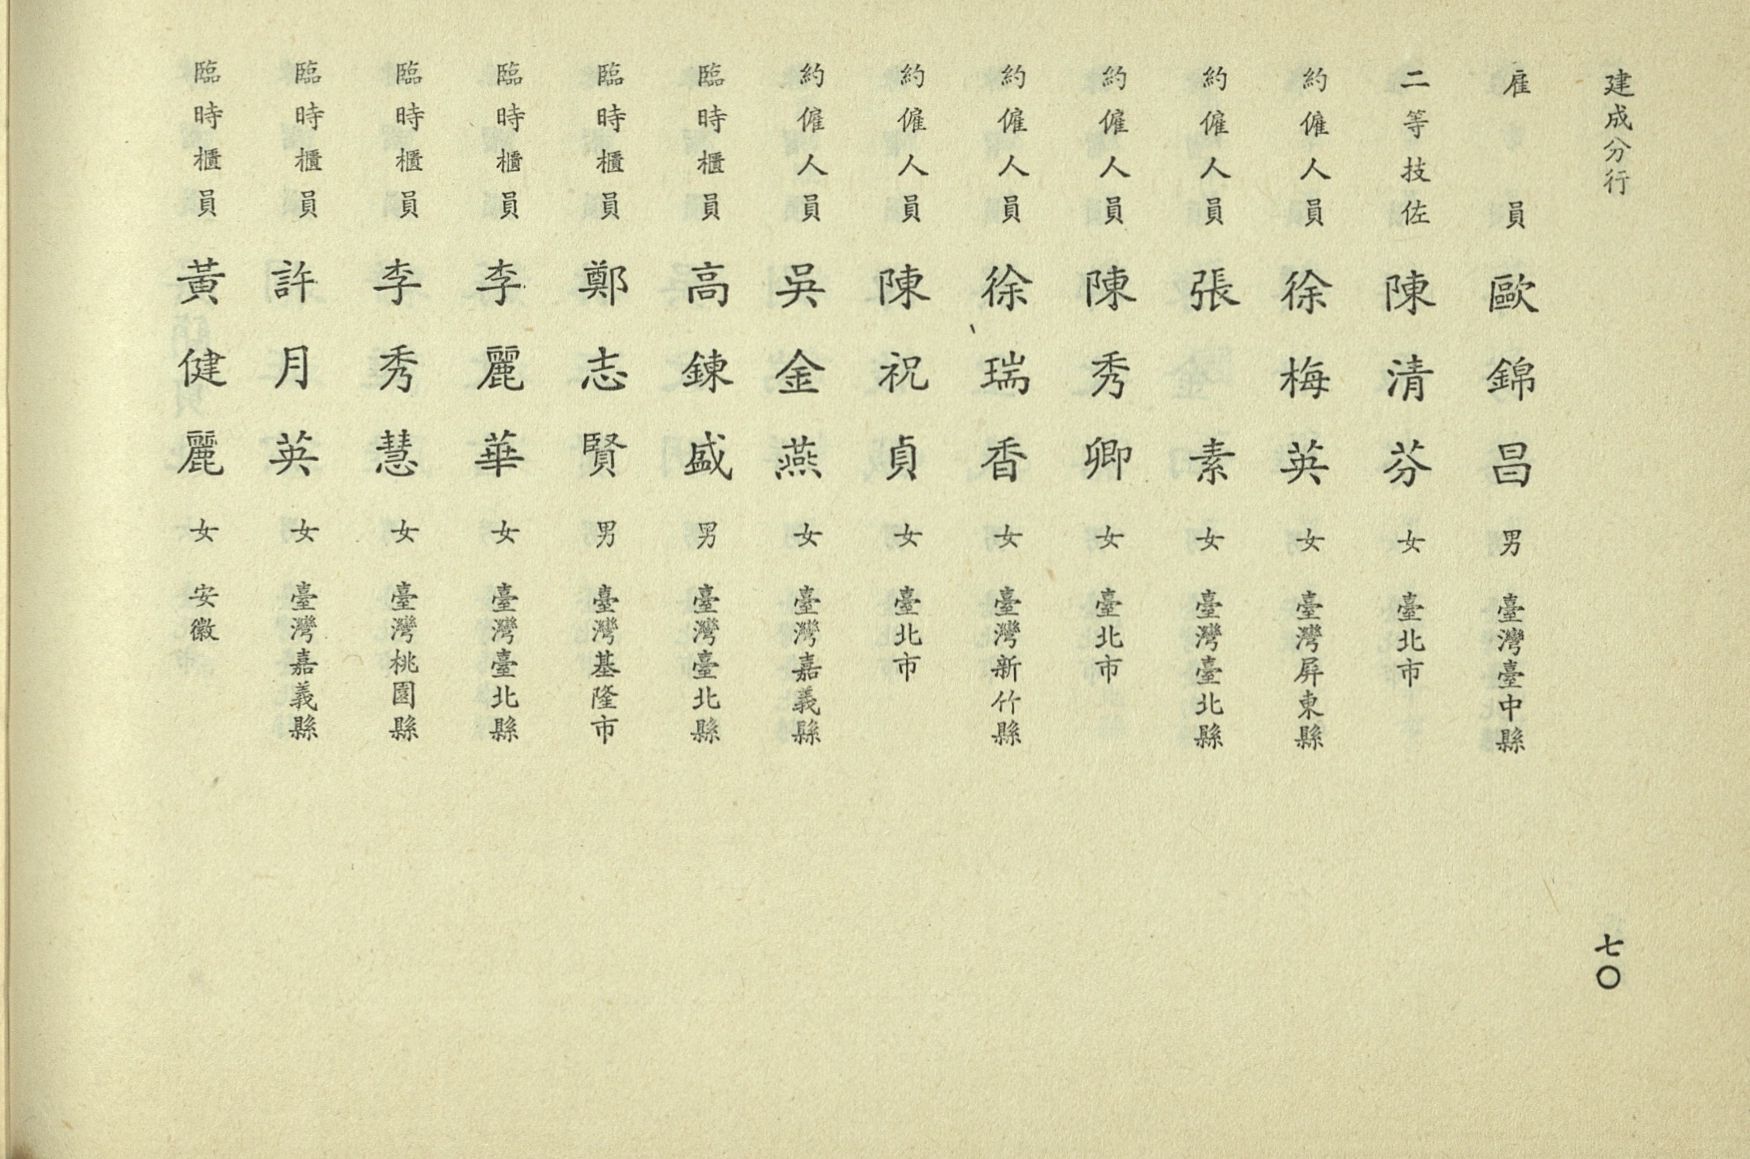 建成分行
雇員 歐錦昌 男 臺灣臺中縣
二等技佐 陳清芬 女 臺北市
約僱人員 徐梅英 女 臺灣屏東縣
約僱人員 張素 女 臺灣臺北縣
約僱人員 陳秀卿 女 臺北市
約僱人員 徐瑞香 女 臺灣新竹縣
約僱人員 陳祝貞 女 臺北市
約僱人員 吳金燕 女 臺灣嘉義縣
臨時櫃員 高鍊盛 男 臺灣臺北縣
臨時櫃員 鄭志賢 男 臺灣基隆市
臨時櫃員 李麗華 女 臺灣臺北縣
臨時櫃員 李秀慧 女 臺灣桃園縣
臨時櫃員 許月英 女 臺灣嘉義縣
臨時櫃員 黃健麗 女 安徽
七〇